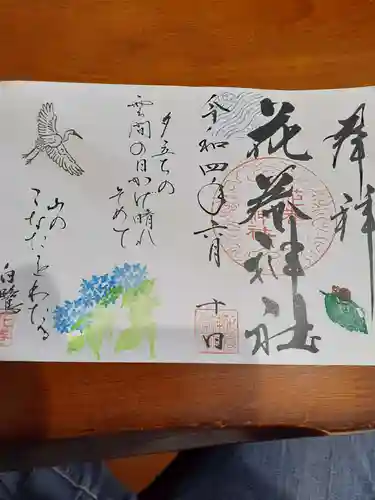 奉拝
花巻神社
令和四年六月十日
夕立の
雲間の日かげ晴れ
そめて
山の
こなたをわたる
白鷺